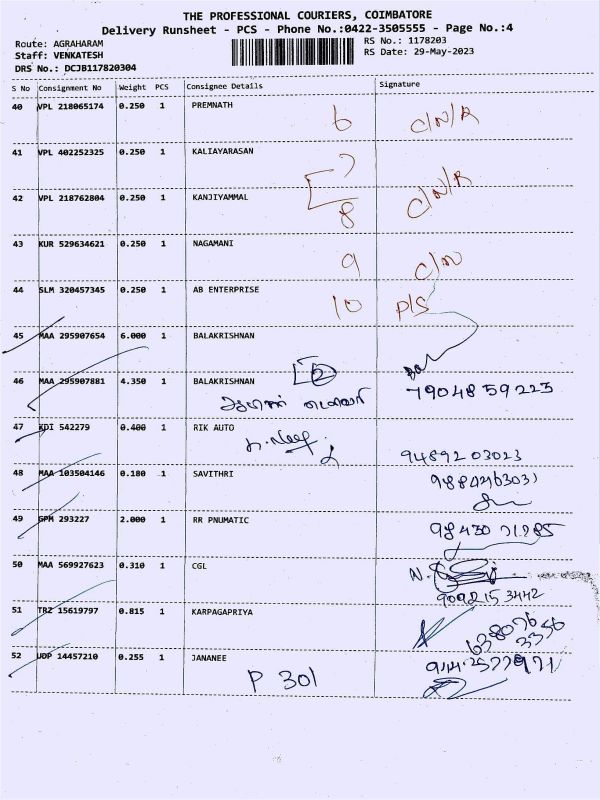 THE PROFESSIONAL COURIERS, COIMBATORE
Delivery Runsheet - PCS - Phone No.:0422-3505555 - Page No.:4
Route: AGRAHARAM RS No.: 1178203
Staff: VENKATESH RS Date: 29-May-2023
DRS No.: DCJB117820304
S No Consignment No Weight PCS Consignee Details Signature
40 VPL 218065174 0.250 1 PREMNATH
6 C/N/R
41 VPL 402252325 0.250 1 KALIAYARASAN
7
42 VPL 218762804 0.250 1 KANJIYAMMAL C/N/R
8
43 KUR 529634621 0.250 1 NAGAMANI
9 C/N
44 SLM 320457345 0.250 1 AB ENTERPRISE
10 P/S
45 MAA 295907654 6.000 1 BALAKRISHNAN
46 MAA 295907881 4.350 1 BALAKRISHNAN 2
7904859223
47 KDI 542279 0.400 1 RIK AUTO
9489203023
48 MAA 103504146 0.180 1 SAVITHRI
49 GPM 293227 2.000 1 RR PNUMATIC
50 MAA 569927623 0.310 1 CGL
9092153442
51 TRZ 15619797 0.815 1 KARPAGAPRIYA
52 UDP 14457210 0.255 1 JANANEE
P 301